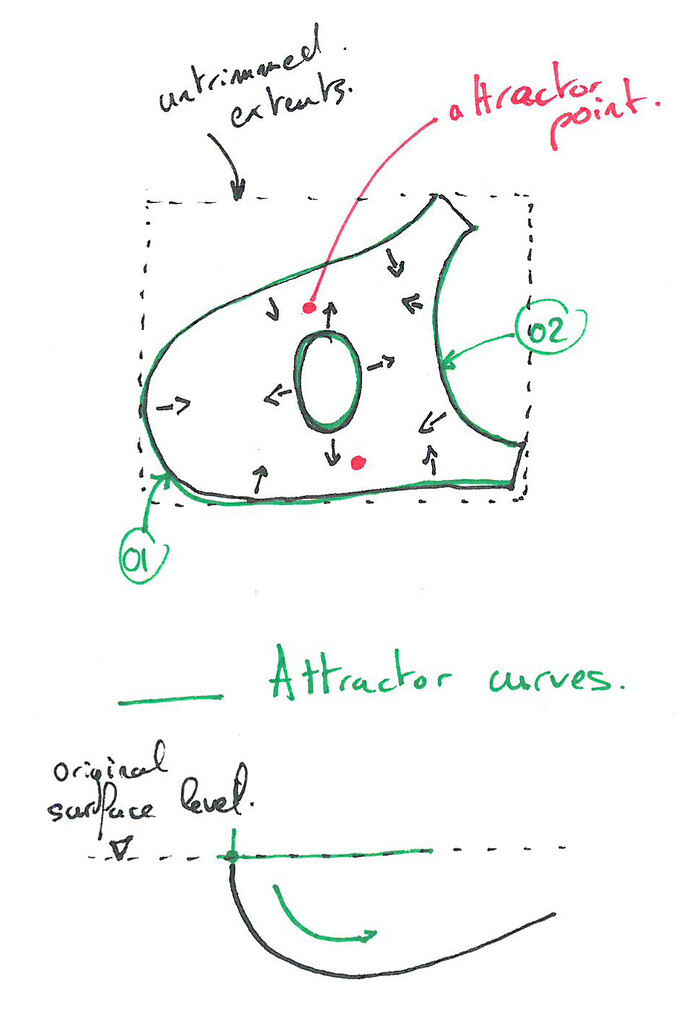 untrimmed
extents.
attractor
point.
02
01
Attractor curves.
original
surface level.